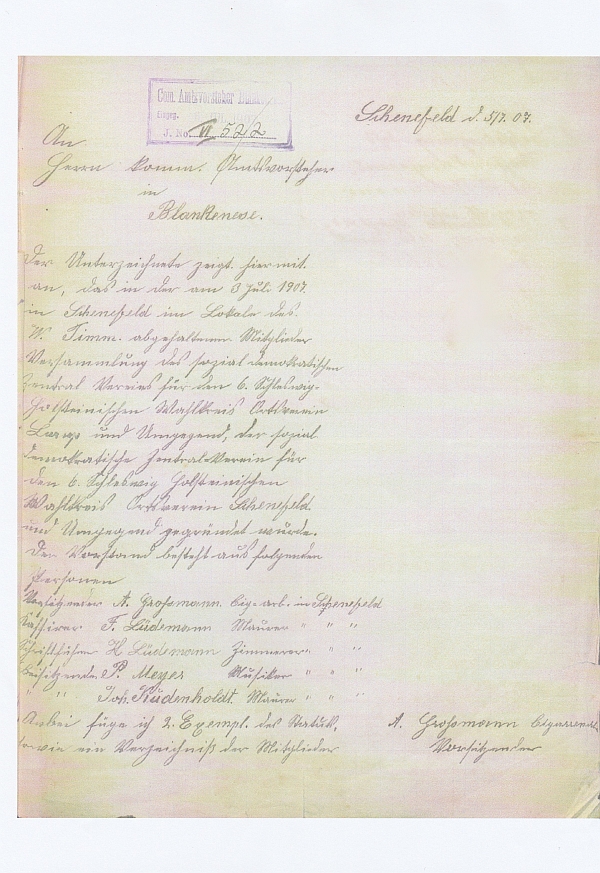 Com. Amtsvorsteher
Eingeg.
J. No. VI 52/2
Schenefeld d. 5/7. 07.
An
Herrn komm. Amtsvorsteher
in
Blankenese.
Der Unterzeichnete zeigt hiermit
an, das in der am 3 Juli 1907
in Schenefeld im Lokale des
W. Timm. abgehaltenen Mitglieder
Versammlung des sozialdemokratischen
Zentral Vereins für den 6. Schleswig-
Holsteinischen Wahlkreis Ortsverein
Lurup und Umgegend, der sozial
demokratische Zentral-Verein für
den 6. Schleswig Holsteinischen
Wahlkreis Ortsverein Schenefeld
und Umgegend gegründet wurde.
Der Vorstand besteht aus folgenden
Personen
Vorsitzender A. Grossmann Cig-arb. in Schenefeld
Kassirer F. Lüdemann Maurer " " "
Schriftführer H Lüdemann Zimmerer " " "
Beisitzende P. Meyer Musiker " " "
" " Joh. Rüdenholdt. Maurer " " "
Anbei füge ich 2. Exempl. des Statuts,
sowie ein Verzeichniß der Mitglieder
A. Grossmann
Vorsitzender